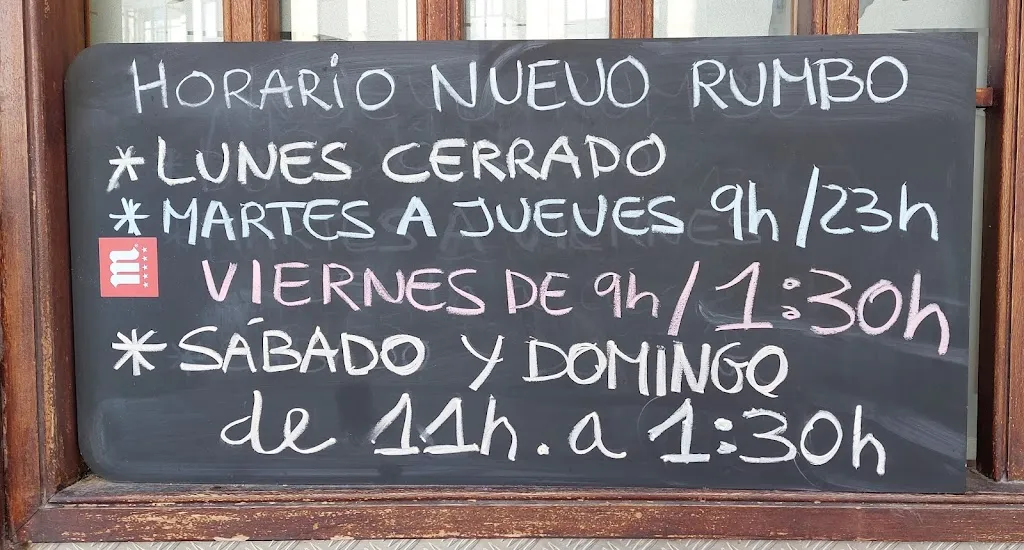 HORARIO NUEVO RUMBO
*LUNES CERRADO
*MARTES A JUEVES 9h/23h
m
VIERNES DE 9h/1:30h
*SÁBADO Y DOMINGO
de 11h. a 1:30h